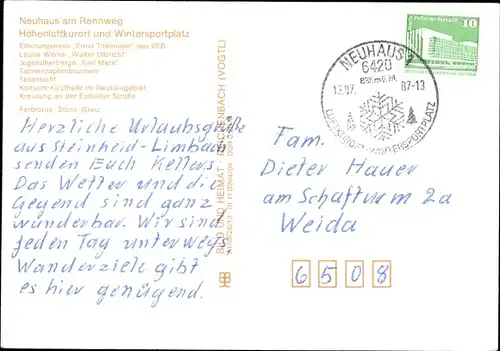 Neuhaus am Rennweg
Höhenluftkurort und Wintersportplatz
Erholungsheim „Ernst Thälmann" des VEB
Leuna-Werke „Walter Ulbricht"
Jugendherberge „Karl Marx"
Tannenzapfenbrunnen
Teilansicht
Konsum-Kaufhalle im Neubaugebiet
Kreuzung an der Eisfelder Straße
Farbfotos:
Herzliche Urlaubsgrüße
aus Steinheid-Limbach
senden Euch Kellers.
Das Wetter und die
Gegend sind ganz
wunderbar. Wir sind
jeden Tag unterwegs
Wanderziele gibt
es hier genügend.
BILD UND HEIMAT REICHENBACH (VOGTL)
NEUHAUS 1
6420
835m ü.M.
13.07. 87-13
LUFTKURORT WINTERSPORTPLATZ
10
Fam.
Dieter Hauer
am Schafturm 2a
Weida
6508